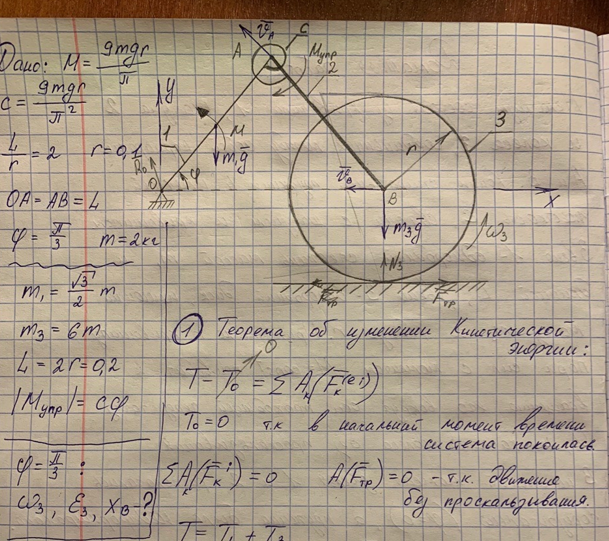 Дано: M = 9mgr/π
c = 9mgr/π²
L/r = 2 r = 0,1
OA = AB = L
φ = π/3 m = 2кг
m₁ = √3/2 m
m₃ = 6m
L = 2r = 0,2
|Mупр| = cφ
φ = π/3 :
ω₃, ε₃, x_B - ?
V̄_A
C
A
Mупр
2
y
1
M
m₁ḡ
R₀
O
φ
3
r
V̄_B
B
x
m₃ḡ
ω₃
N₃
Fтр
Fтр
① Теорема об изменении Кинетической
Энергии:
T - T₀ = ΣAₖ(F̄ₖ⁽ᵉ ⁱ⁾)
0
T₀ = 0 т.к в начальный момент времени
система покоилась.
ΣAₖ(F̄ₖⁱ) = 0 A(F̄тр) = 0 - т.к. движение
без проскальзывания.
T = T₁ + T₃